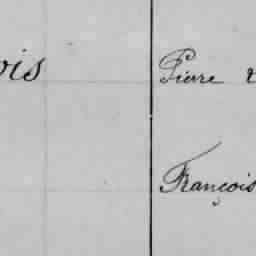 ois
Pierre
François